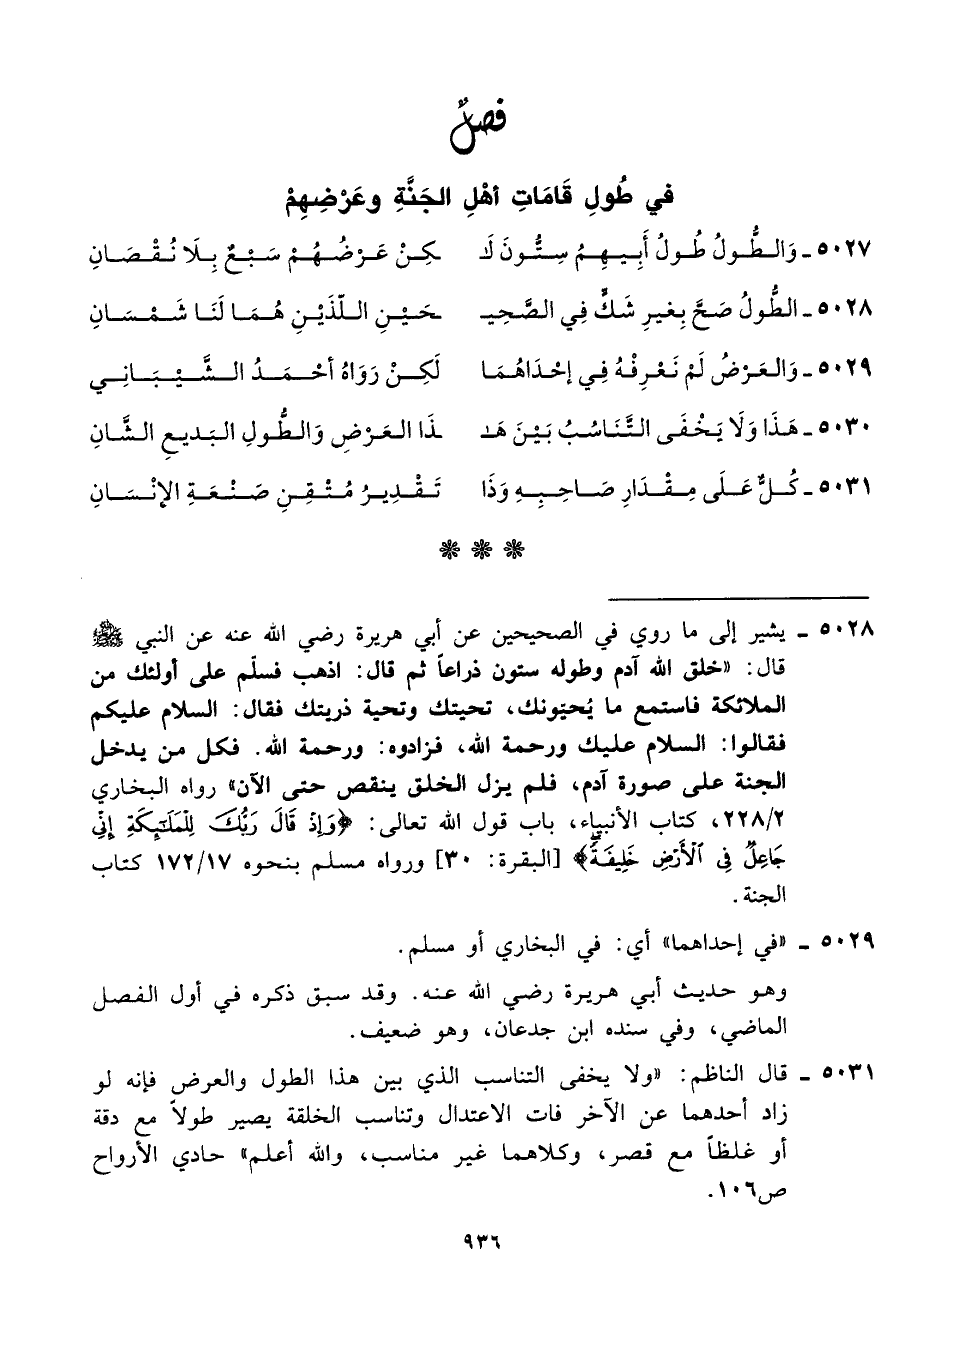 فصلٌ
في طُولِ قَامَاتِ أهْلِ الجَنَّةِ وعَرْضِهِمْ
٥٠٢٧ ـ وَالطُّولُ طُولُ أَبِيهِمُ سِتُّونَ لَـ كِنْ عَرْضُهُمْ سَبْعٌ بِلَا نُقْصَانِ
٥٠٢٨ ـ الطُّولُ صَحَّ بِغيرِ شَكٍّ فِي الصَّحِيـ ـحَيْنِ اللَّذَيْنِ هُمَا لَنَا شَمْسَانِ
٥٠٢٩ ـ وَالعَرْضُ لَمْ نَعْرِفْهُ فِي إحْدَاهُمَا لَكِنْ رَوَاهُ أحْمَدُ الشَّيْبَانِي
٥٠٣٠ ـ هَذَا وَلَا يَخْفَى التَّنَاسُبُ بَيْنَ هَـ ـذَا العَرْضِ وَالطُّولِ البَدِيعِ الشَّانِ
٥٠٣١ ـ كُلٌّ عَلَى مِقْدَارِ صَاحِبِهِ وَذَا تَقْدِيرُ مُتْقِنِ صَنْعَةِ الإنْسَانِ
٥٠٢٨ ـ يشير إلى ما روي في الصحيحين عن أبي هريرة رضي الله عنه عن النبي ﷺ
قال: «خلق الله آدم وطوله ستون ذراعاً ثم قال: اذهب فسلّم على أولئك من
الملائكة فاستمع ما يُحيّونك، تحيتك وتحية ذريتك فقال: السلام عليكم
فقالوا: السلام عليك ورحمة الله، فزادوه: ورحمة الله. فكل من يدخل
الجنة على صورة آدم، فلم يزل الخلق ينقص حتى الآن» رواه البخاري
٢٢٨/٢، كتاب الأنبياء، باب قول الله تعالى: ﴿وَإِذْ قَالَ رَبُّكَ لِلْمَلَٰٓئِكَةِ إِنِّي
جَاعِلٌ فِي ٱلْأَرْضِ خَلِيفَةً﴾ [البقرة: ٣٠] ورواه مسلم بنحوه ١٧٢/١٧ كتاب
الجنة.
٥٠٢٩ ـ «في إحداهما» أي: في البخاري أو مسلم.
وهو حديث أبي هريرة رضي الله عنه. وقد سبق ذكره في أول الفصل
الماضي، وفي سنده ابن جدعان، وهو ضعيف.
٥٠٣١ ـ قال الناظم: «ولا يخفى التناسب الذي بين هذا الطول والعرض فإنه لو
زاد أحدهما عن الآخر فات الاعتدال وتناسب الخلقة يصير طولاً مع دقة
أو غلظاً مع قصر، وكلاهما غير مناسب، والله أعلم» حادي الأرواح
ص١٠٦.
٩٣٦